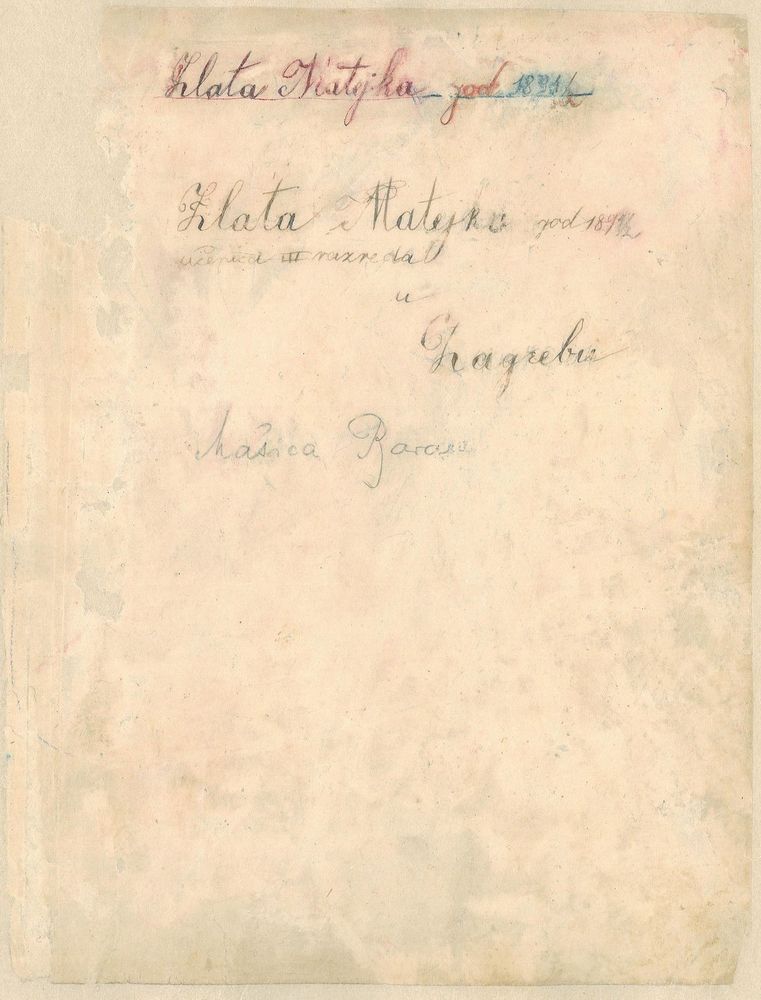 Zlata Matejka god 1891/2
Zlata Matejka god 1891/2
učenica III razreda
u
Zagrebu
Mašica